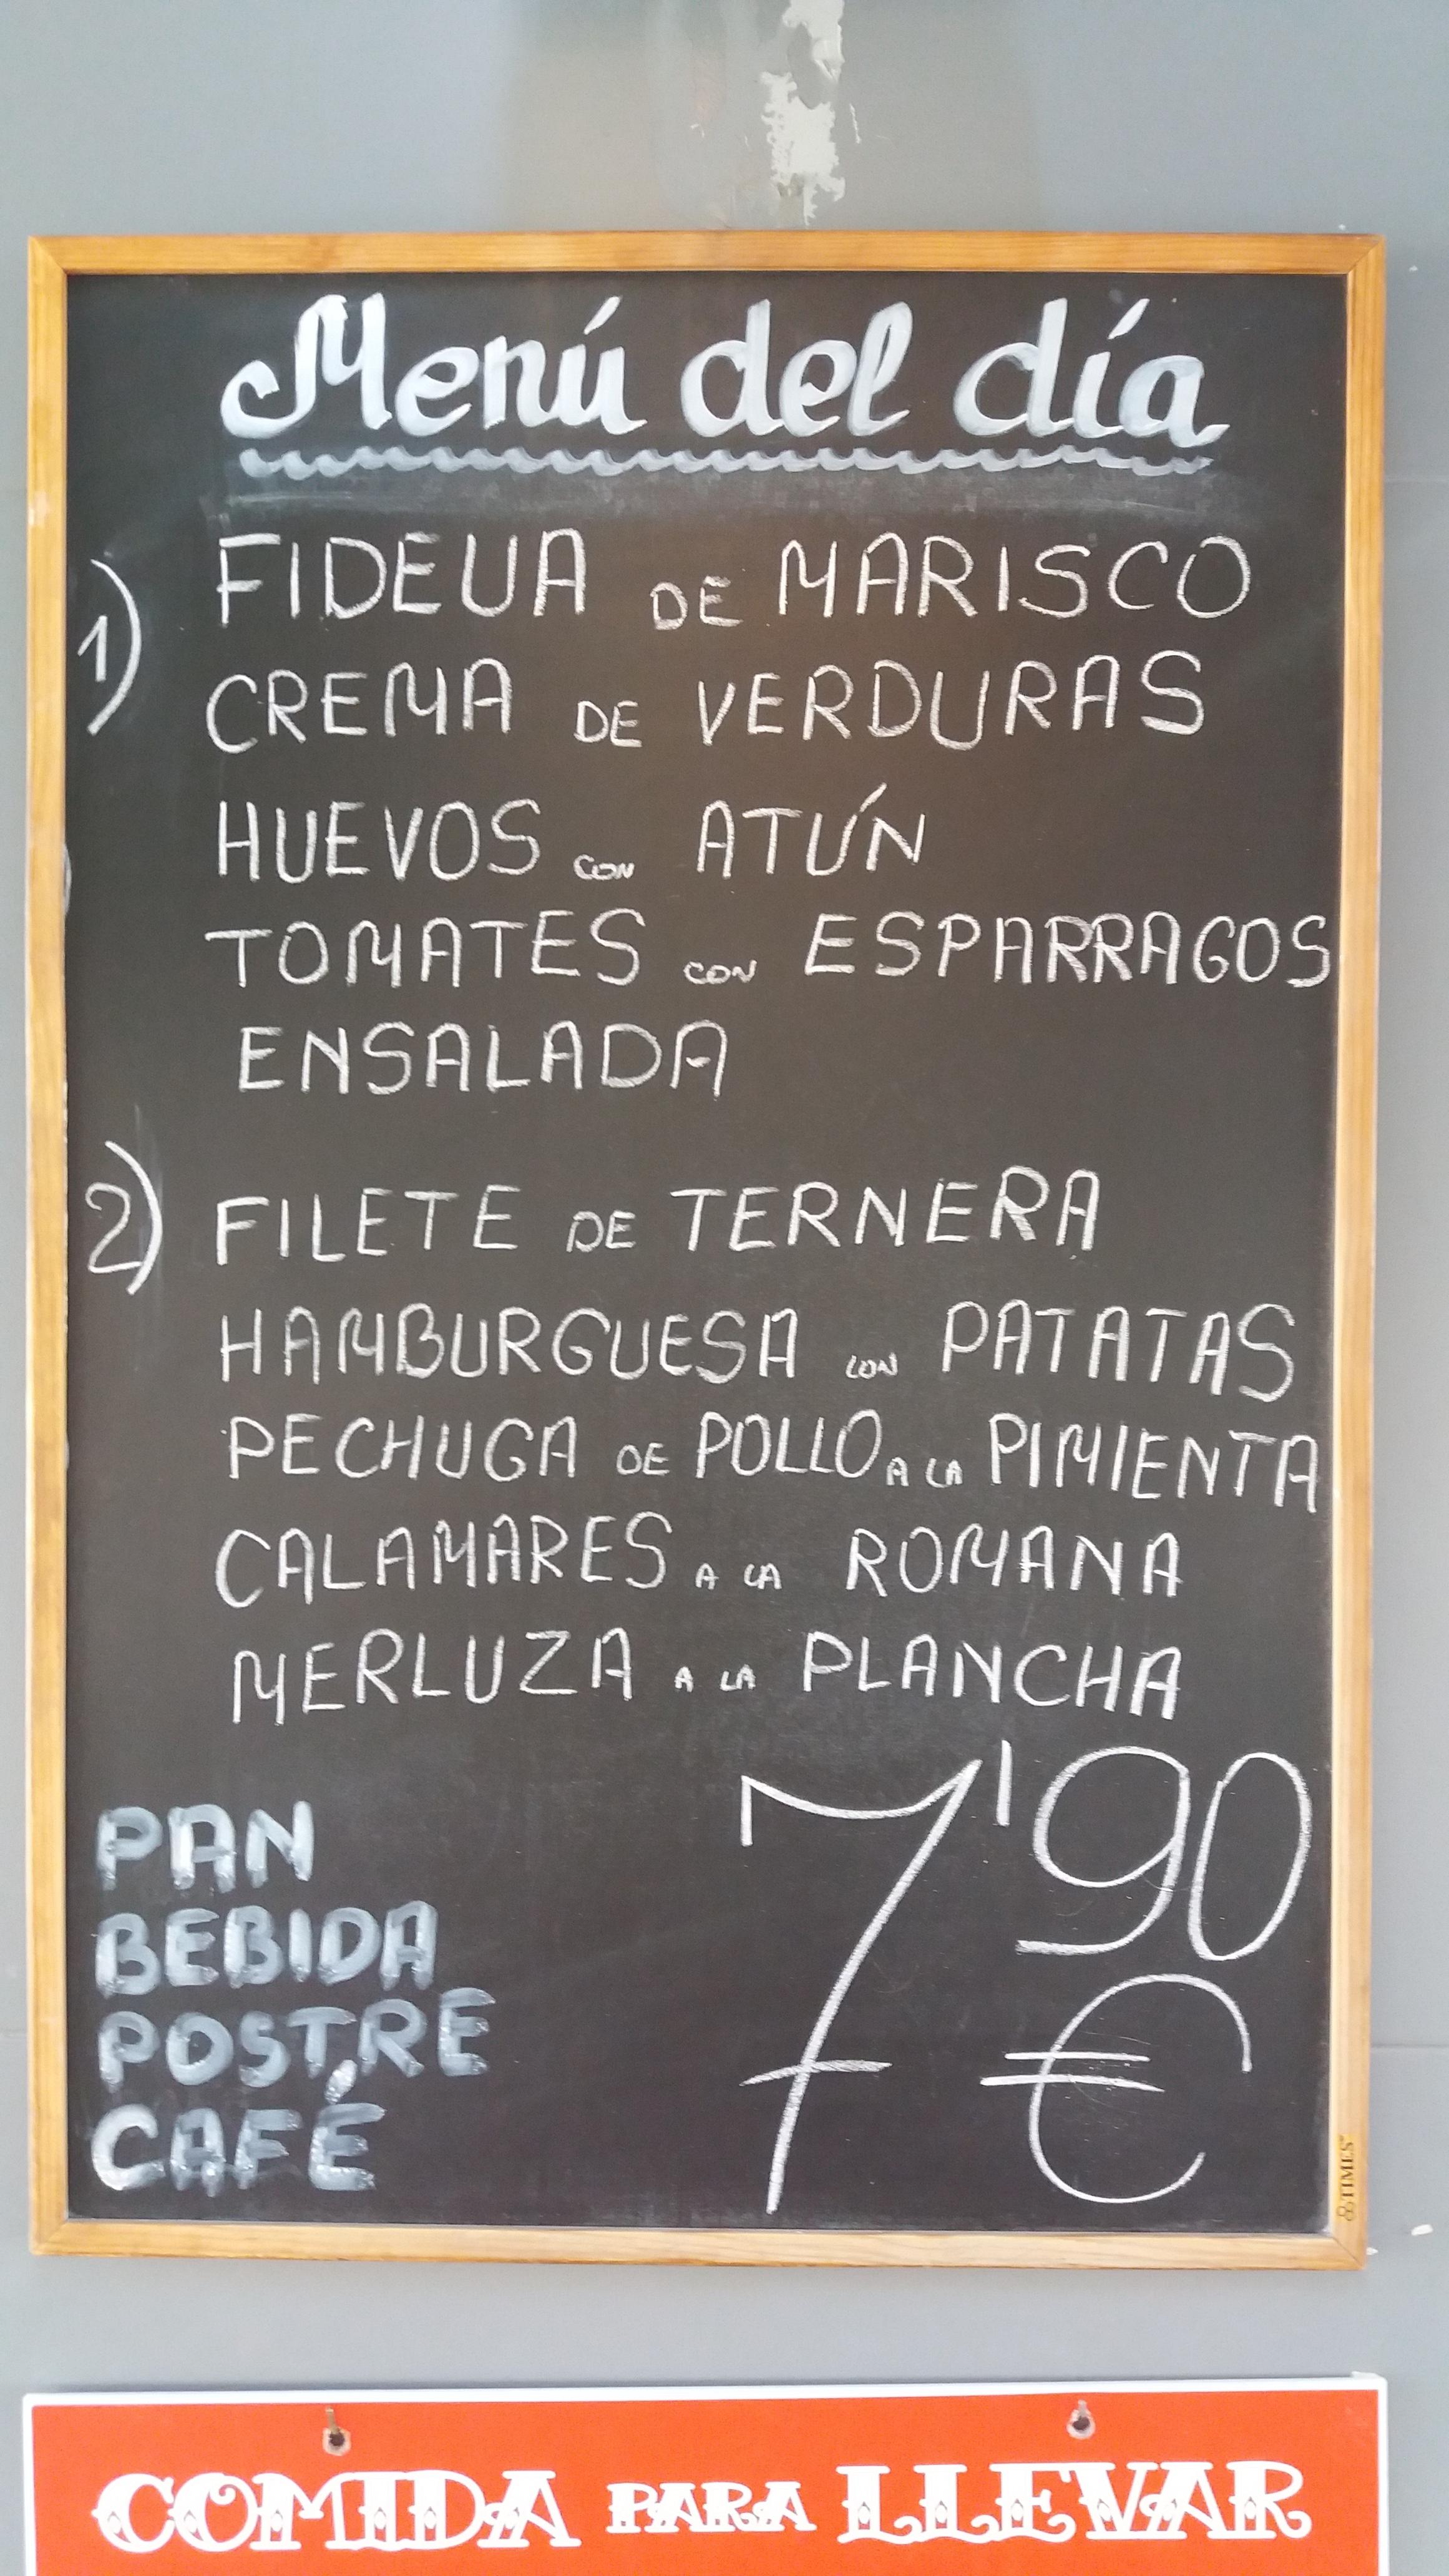 Menú del día
1) FIDEUA DE MARISCO
CREMA DE VERDURAS
HUEVOS CON ATÚN
TOMATES CON ESPARRAGOS
ENSALADA
2) FILETE DE TERNERA
HAMBURGUESA CON PATATAS
PECHUGA DE POLLO A LA PIMIENTA
CALAMARES A LA ROMANA
MERLUZA A LA PLANCHA
PAN
BEBIDA
POSTRE
CAFÉ
7'90
€
TIMES
COMIDA PARA LLEVAR